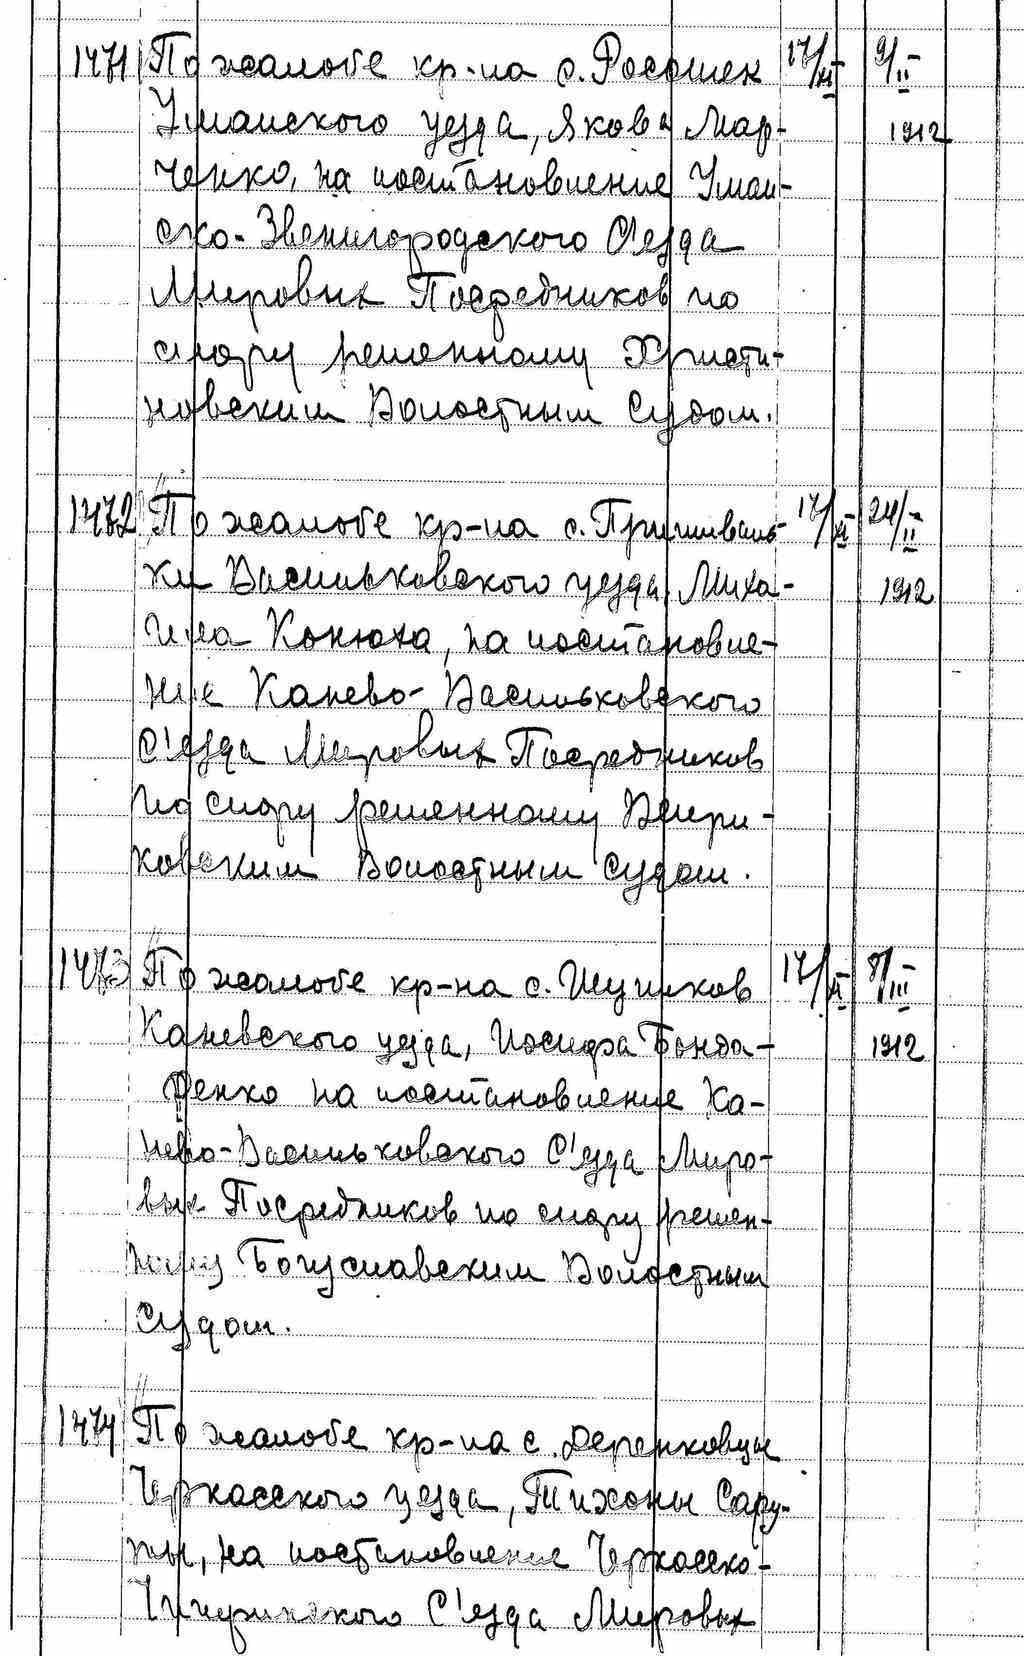 1471 По жалобе кр-на с. Росошек 17/XI 9/II
Уманского уезда, Якова Мар- 1912
ченко, на постановление Уман-
ско-Звенигородского С'езда
Мировых Посредников по
спору решенному Христи-
новским Волостным Судом.
1472 По жалобе кр-на с. Пришиваль- 17/XI 24/II
ки Васильковского уезда, Миха- 1912
ила Конюха, на постановле-
ние Канево-Васильковского
С'езда Мировых Посредников
по спору решенному Винри-
ковским Волостным Судом.
1473 По жалобе кр-на с. Шупиков 17/XI 8/III
Каневского уезда, Иосифа Бонда- 1912
ренко на постановление Ка-
нево-Васильковского С'езда Миро-
вых Посредников по спору решен-
ному Богуславским Волостным
Судом.
1474 По жалобе кр-на с. Деренковцы
Черкасского уезда, Тихоны Сару-
ны, на постановление Черкасско-
Чигиринского С'езда Мировых